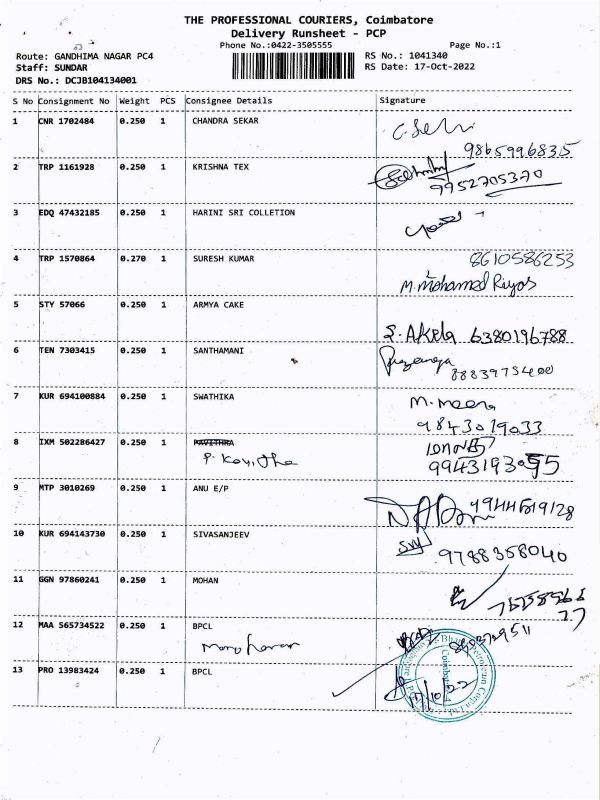 THE PROFESSIONAL COURIERS, Coimbatore
Delivery Runsheet - PCP
Phone No.:0422-3505555
Page No.:1
Route: GANDHIMA NAGAR PC4
RS No.: 1041340
Staff: SUNDAR
RS Date: 17-Oct-2022
DRS No.: DCJB104134001
S No Consignment No Weight PCS Consignee Details Signature
1 CNR 1702484 0.250 1 CHANDRA SEKAR
9865996835
2 TRP 1161928 0.250 1 KRISHNA TEX
9952705370
3 EDQ 47432185 0.250 1 HARINI SRI COLLETION
4 TRP 1570864 0.270 1 SURESH KUMAR 8610586253
M. Mohamed Riyas
5 STY 57066 0.250 1 ARMYA CAKE
S. Akela 6380196788
6 TEN 7303415 0.250 1 SANTHAMANI
7 KUR 694100884 0.250 1 SWATHIKA M. meena
9843019033
8 IXM 502286427 0.250 1 PAVITHRA
P. Kavitha 9943193095
9 MTP 3010269 0.250 1 ANU E/P
10 KUR 694143730 0.250 1 SIVASANJEEV
9788358040
11 GGN 97860241 0.250 1 MOHAN
12 MAA 565734522 0.250 1 BPCL
Manoharan
13 PRO 13983424 0.250 1 BPCL
17/10/22